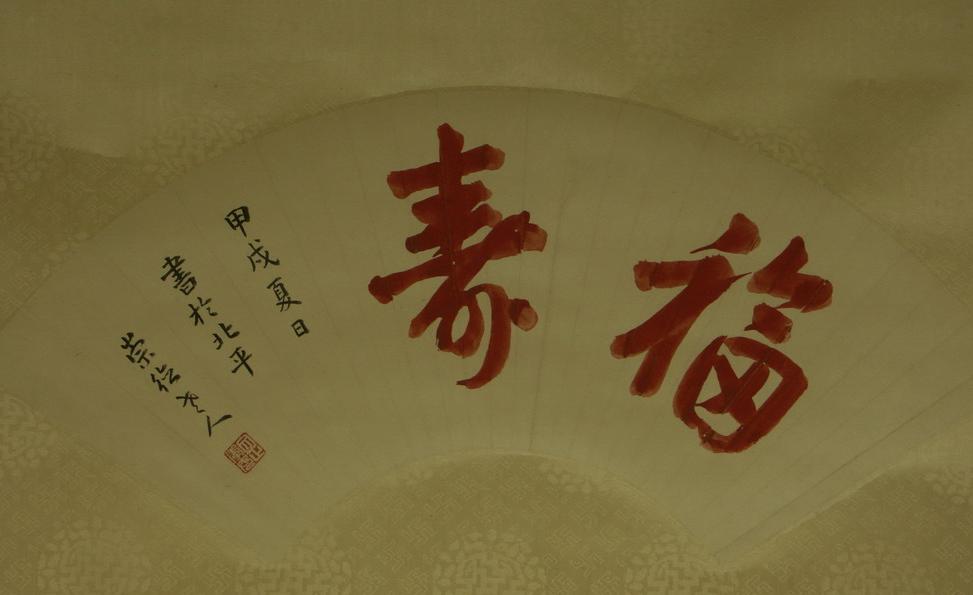 福壽
甲戌夏日
書於北平
崇绘老人